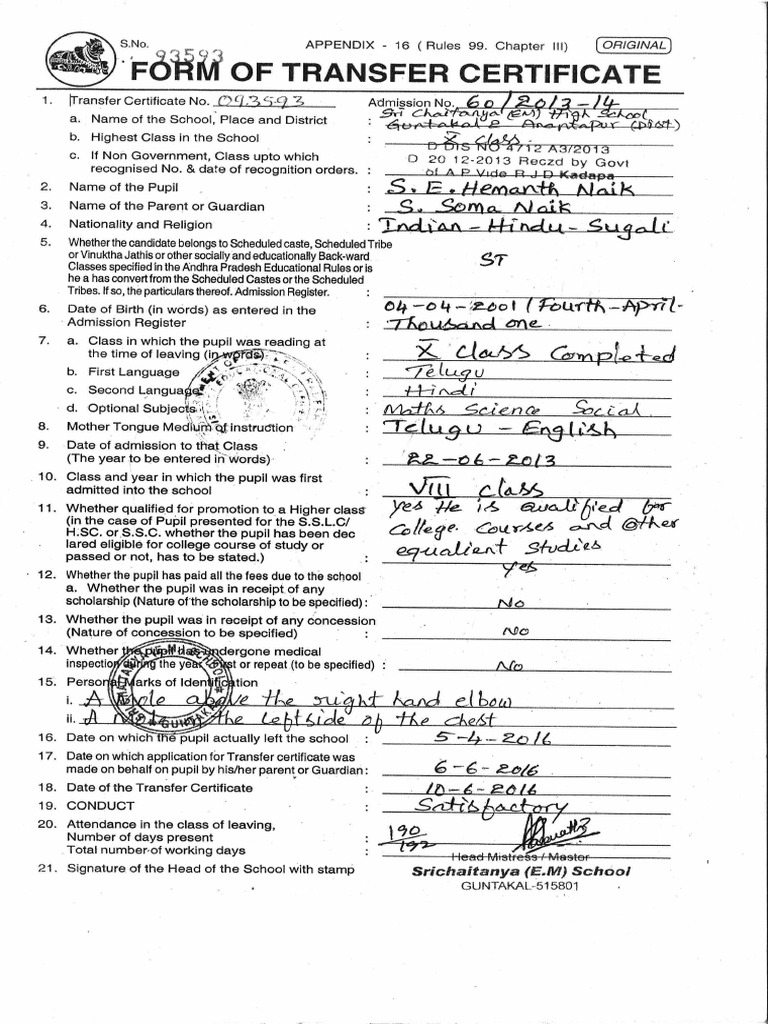 S.No. 93593 APPENDIX - 16 ( Rules 99. Chapter III) ORIGINAL
FORM OF TRANSFER CERTIFICATE
1. Transfer Certificate No. 093593 Admission No. 60/2013-14
a. Name of the School, Place and District : Sri Chaitanya (EM) High School
Guntakal Anantapur (Dist)
b. Highest Class in the School : X class
c. If Non Government, Class upto which D DIS NO 4712 A3/2013
recognised No. & date of recognition orders. : D 20 12-2013 Reczd by Govt
of A P Vide R J D Kadapa
2. Name of the Pupil : S. E. Hemanth Naik
3. Name of the Parent or Guardian : S. Soma Naik
4. Nationality and Religion : Indian - Hindu - Sugali
5. Whether the candidate belongs to Scheduled caste, Scheduled Tribe
or Vinuktha Jathis or other socially and educationally Back-ward ST
Classes specified in the Andhra Pradesh Educational Rules or is
he a has convert from the Scheduled Castes or the Scheduled
Tribes. If so, the particulars thereof. Admission Register. :
6. Date of Birth (in words) as entered in the 04-04-2001 / Fourth-April-
Admission Register : Thousand one
7. a. Class in which the pupil was reading at
the time of leaving (in words) : X class Completed
b. First Language : Telugu
c. Second Language : Hindi
d. Optional Subjects : Maths Science Social
8. Mother Tongue Medium of instruction : Telugu - English
9. Date of admission to that Class
(The year to be entered in words) : 22-06-2013
10. Class and year in which the pupil was first
admitted into the school : VIII class
11. Whether qualified for promotion to a Higher class yes He is Qualified for
(in the case of Pupil presented for the S.S.L.C/
H.SC. or S.S.C. whether the pupil has been dec College Courses and Other
lared eligible for college course of study or equalient Studies
passed or not, has to be stated.) :
12. Whether the pupil has paid all the fees due to the school yes
a. Whether the pupil was in receipt of any
scholarship (Nature of the scholarship to be specified) : No
13. Whether the pupil was in receipt of any concession
(Nature of concession to be specified) : No
14. Whether the pupil has undergone medical
inspection during the year first or repeat (to be specified) : No
15. Personal Marks of Identification
i. A mole above the right hand elbow
ii. A the leftside of the chest
16. Date on which the pupil actually left the school : 5-4-2016
17. Date on which application for Transfer certificate was
made on behalf on pupil by his/her parent or Guardian : 6-6-2016
18. Date of the Transfer Certificate : 10-6-2016
19. CONDUCT : Satisfactory
20. Attendance in the class of leaving,
Number of days present : 190
Total number of working days : 192
Head Mistress / Master
21. Signature of the Head of the School with stamp Srichaitanya (E.M) School
GUNTAKAL-515801